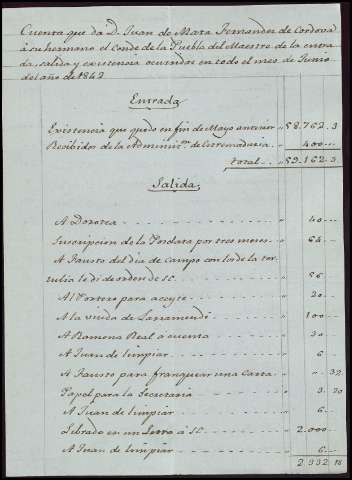 Cuenta que da D. Juan de Mata Fernandez de Cordova
á su hermano el Conde de la Puebla del Maestre de la entra
da, salida y existencia ocurridos en todo el mes de Junio
del año de 1842
Entrada
Existencia que quedó en fin de Mayo anterior " 58.762..3
Recibidos de la Adminis.on de Estremadura " 400...
total... " 59.162..3
Salida
A Dorotea " 40...
Suscripcion de la Posdata por tres meses " 64...
A Fausto del dia de campo con los de la ter
tulia le di de orden de S.E. " 56
Al Portero para aceyte " 20...
A la viuda de " 100...
A Ramona Real á cuenta " 20...
A Juan de limpiar " 6...
A Fausto para franquear una Carta " "..32
Papel para la Secretaría " 3..20
A Juan de limpiar " 6...
Librado en un á S.E. " 2.000...
A Juan de limpiar " 6...
2.332 18